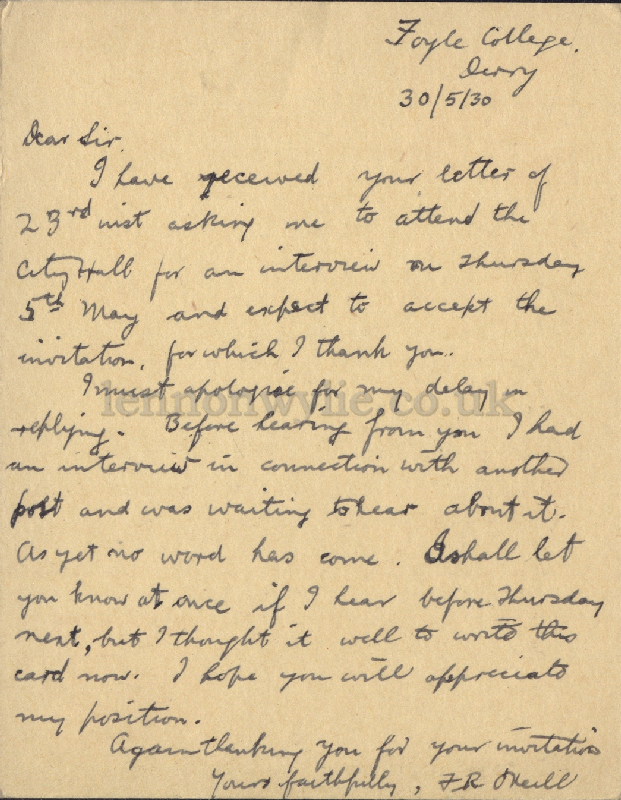 Foyle College.
Derry
30/5/30
Dear Sir,
I have received your letter of
23rd inst asking me to attend the
City Hall for an interview on Thursday
5th May and expect to accept the
invitation, for which I thank you.
I must apologise for my delay in
replying. Before hearing from you I had
an interview in connection with another
post and was waiting to hear about it.
As yet no word has come. I shall let
you know at once if I hear before Thursday
next, but I thought it well to write this
card now. I hope you will appreciate
my position.
Again thanking you for your invitation
Yours faithfully, F R O'Neill
lennonwylie.co.uk